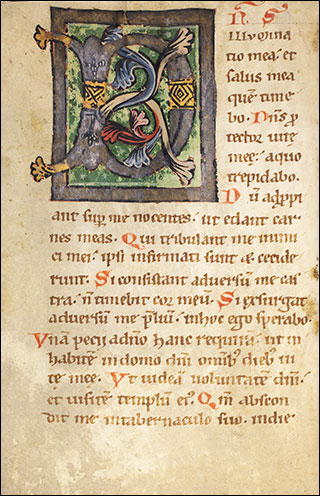 D N̄S
illumina
tio mea · et
salus mea
quē time
bo. Dn̄s p̱
tector uite
mee · a quo
trepidabo.
Dū app̱pi
ant sup̱ me nocentes · ut edant car
nes meas. Qui tribulant me inimi
ci mei · ipsi infirmati sunt & cecide
runt. Si consistant aduersū me cas
tra · n̄ timebit cor meū. Si exsurgat
aduersū me p̱liū · in hoc ego sperabo.
Vnā pecii a dn̄o hanc requirā · ut in
habitē in domo dn̄i omīb; dieb; ui
te mee. Vt uideā uoluntatē dn̄i ·
et uisitē templū ei᷒. Qm̄ abscon
dit me in tabernaculo suo · in die